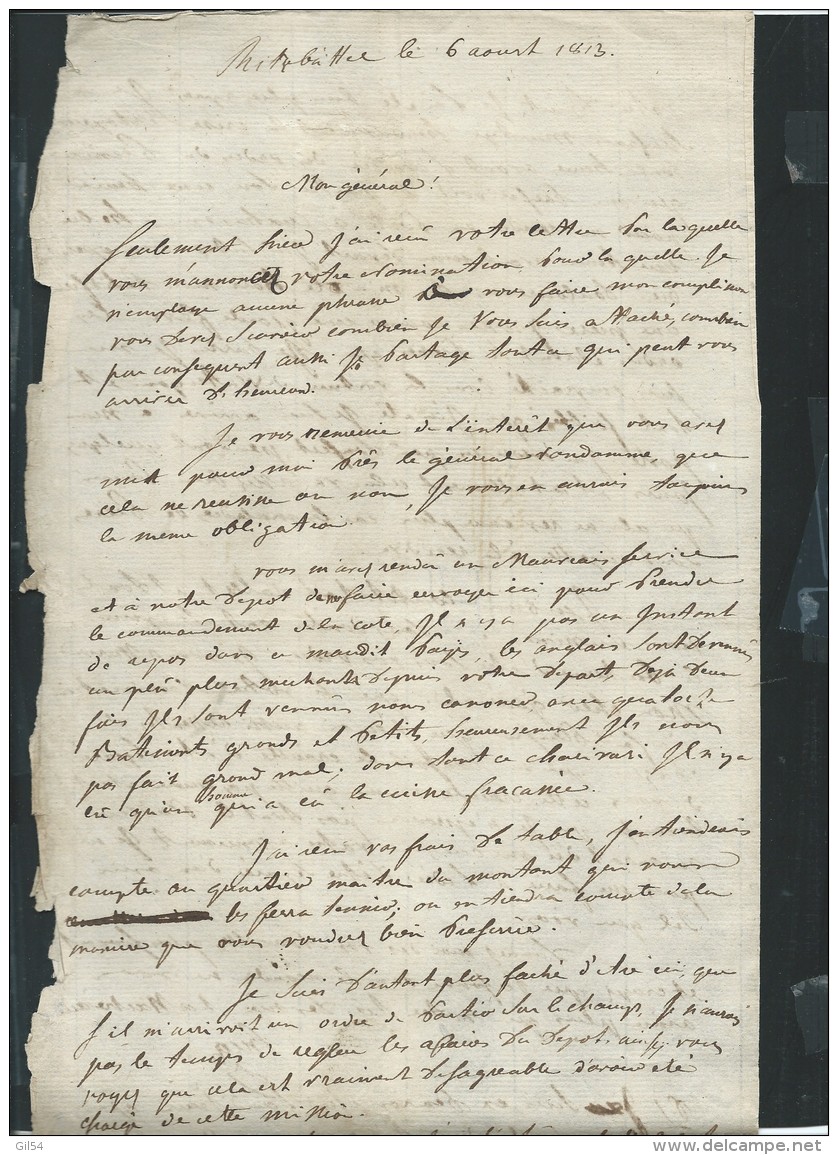 Ritzbüttel le 6 aoust 1813.
Mon général!
Seulement hier j'ai reçu votre lettre par laquelle
vous m'annoncez votre nomination, pour laquelle je
n'employe aucune phrase vous faire mon compliment
vous devez savoir combien je vous suis attaché, combien
par consequent aussi je partage tout ce qui peut vous
arriver d'heureux.
Je vous remercie de l'interêt que vous avez
mis pour moi près le général Vandamme, que
cela reussisse ou non, je vous en aurais toujours
la meme obligation.
vous m'avez rendû un mauvais service
et à notre depot de me faire envoyer ici pour prendre
le commandement de la cote, il n'y a pas un instant
de repos dans ce maudit païs, les anglais sont devenus
un peû plus mechants depuis votre depart, deja deux
fois ils sont vennûs nous canoner avec quatorze
Batiments grands et petits, heureusement ils nous
pas fait grand mal; dans tout ce charivari il n'y a
eû qu'un homme qui a eû la cuisse fracassée.
J'ai reçu vos frais de table, j'en tiendrais
compte au quartier maitre du montant qui vous
les ferra tenir; ou en tiendra compte de la
maniere que vous voudrez bien preferrer.
Je suis d'autant plus faché d'etre ici, que
s'il m'arrivoit un ordre de partir sur le champ, je n'aurais
pas le temps de regler les affaires du depot, ainsi vous
voyez que cela est vraiment desagreable d'avoir eté
chargé de cette mission.
Gil54